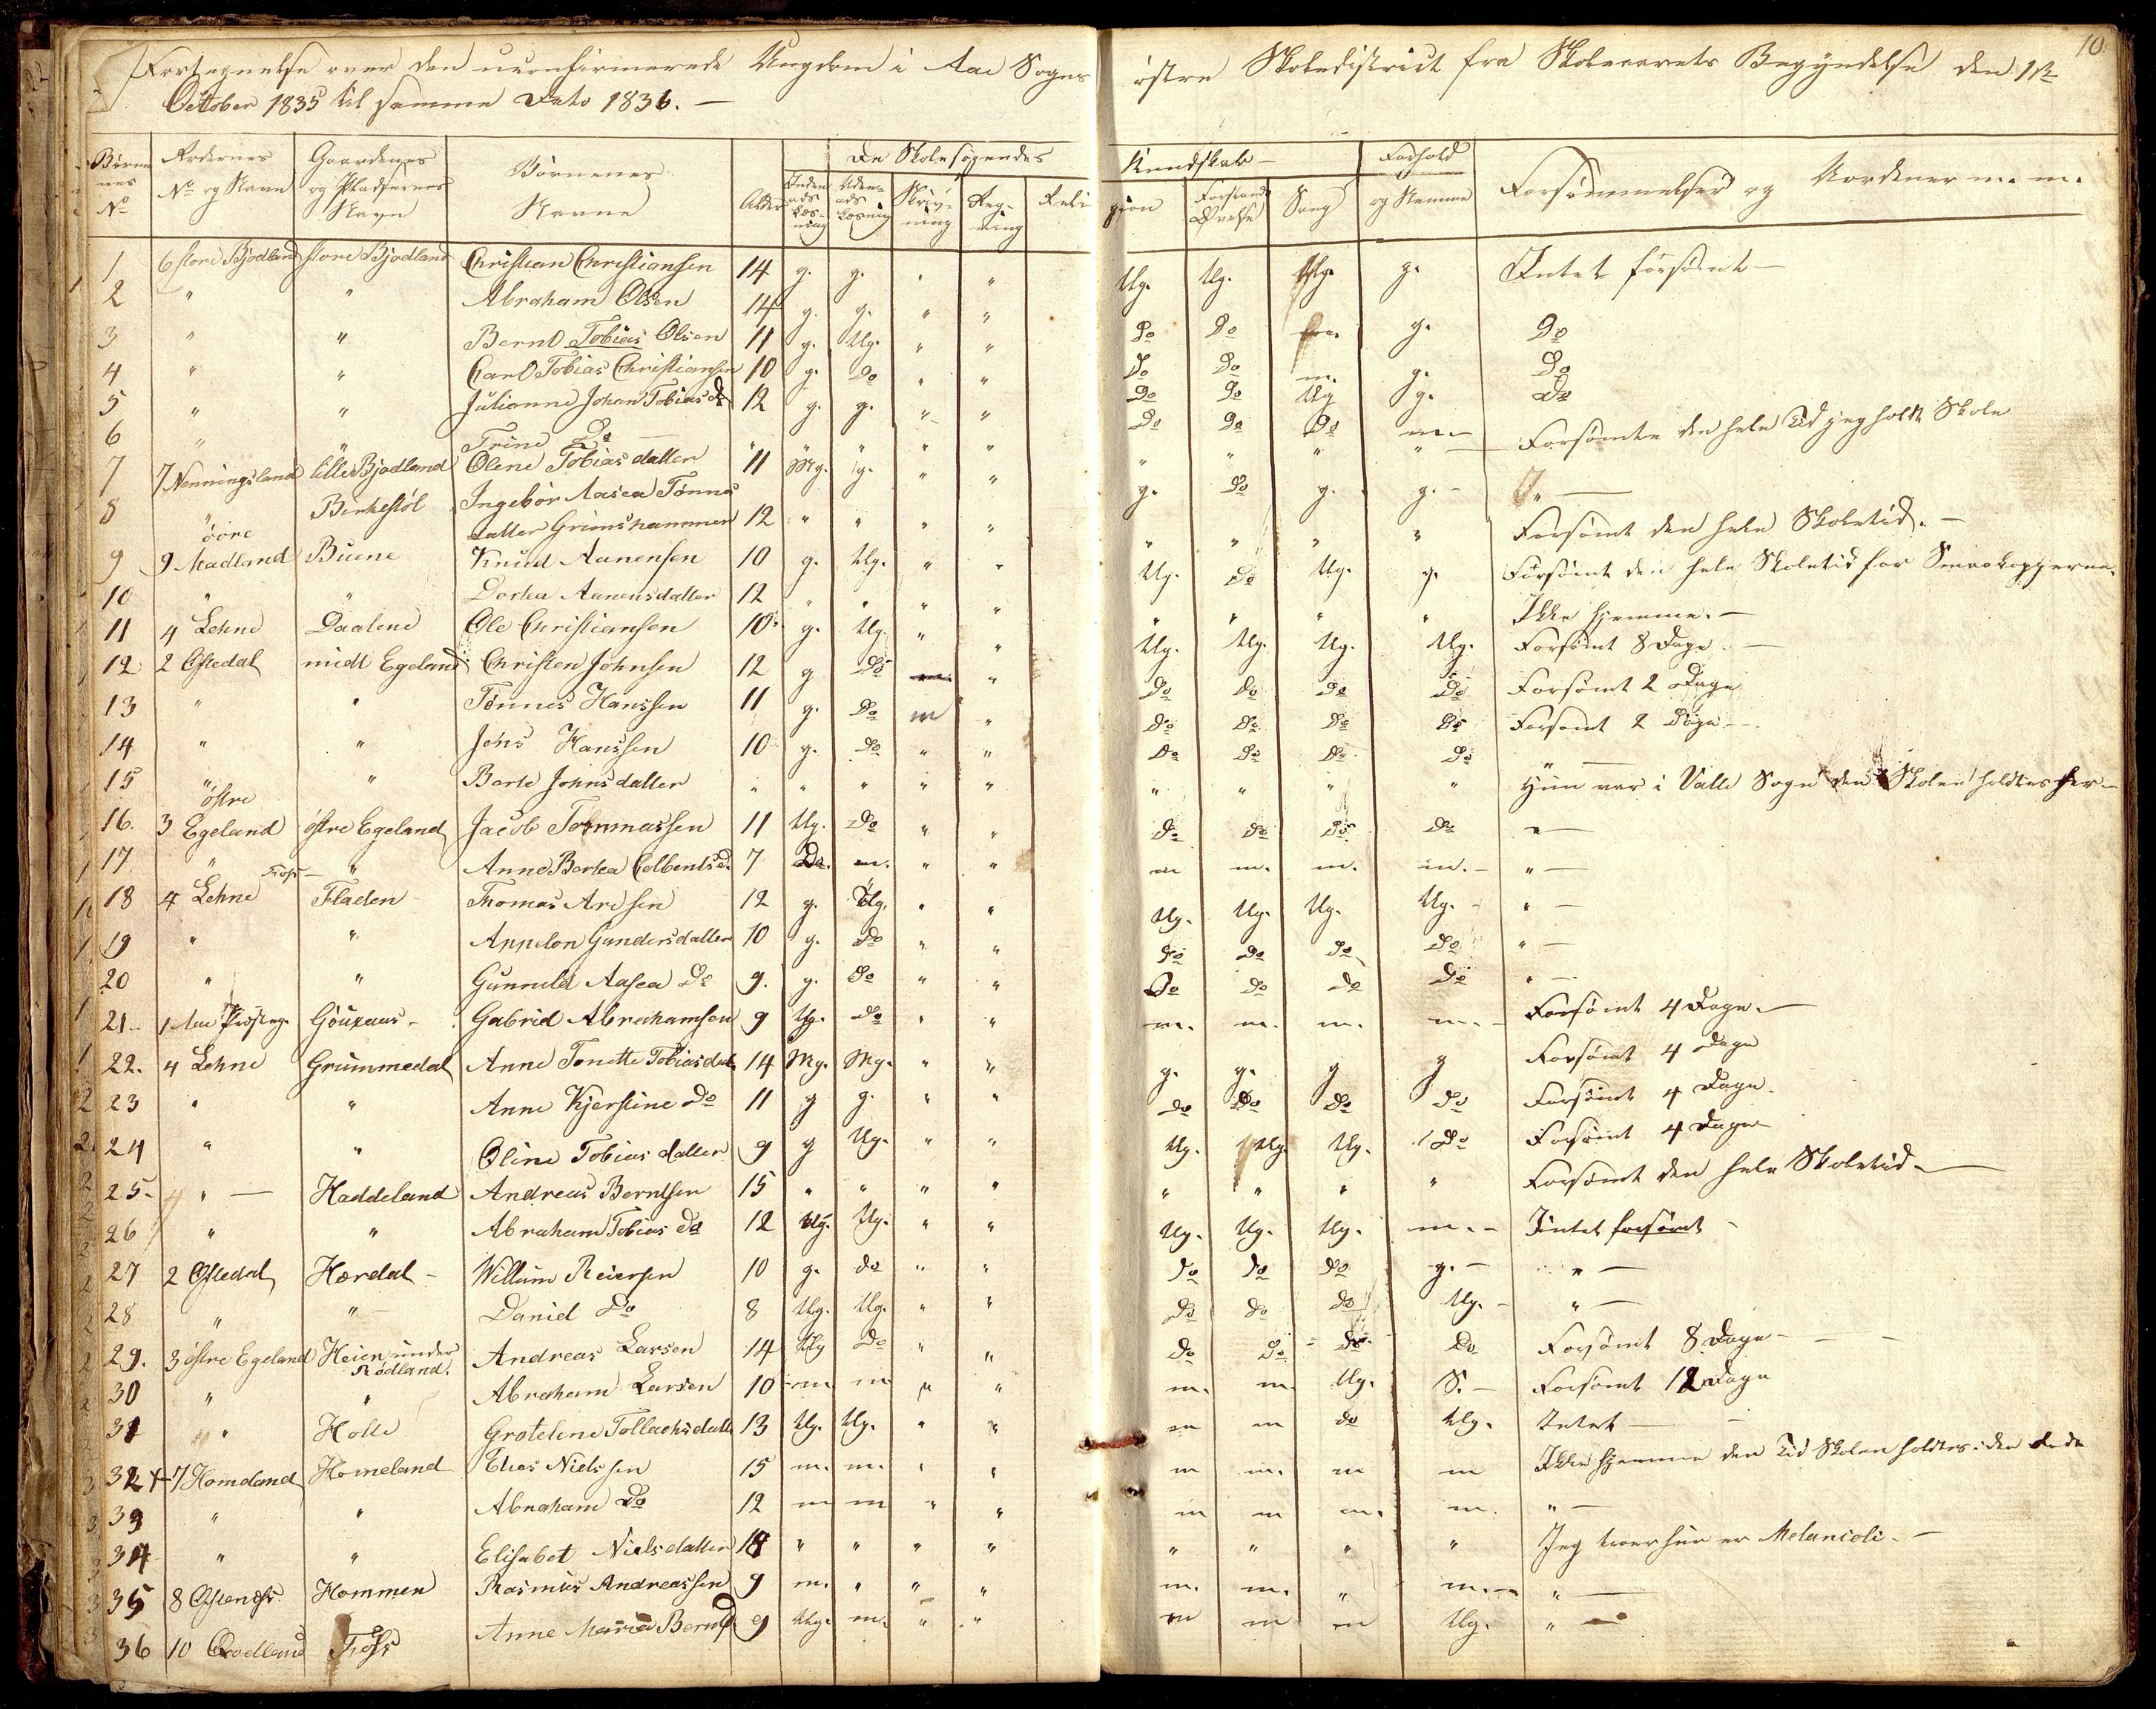 10.
Fortegnelse over den uconfirmerede Ungdom i Aae Sogns østre Skoledistrict fra Skoleaarets Begyndelse den 1ste
October 1835 til samme Dato 1836. —
Børnenes No | Rodernes No og Navn | Gaardenes og Pladsernes Navn | Børnenes Navne | Alder | De Skolesøgendes Kundskab — | Forhold og Nemme | Forsømmelser og Uordener m. m.
Indenads Læsning | Udenads Læsning | Skrivning | Regning | Religion | Forstands Øvelse | Sang
1 6 store Bjodland store Bjodland Christian Christiansen 14 g. g. " " Ug. Ug. Ug. g. Intet forsømt —
2 " " Abraham Olsen 14 g. g. " " Do Do g. Do
3 " " Bernt Tobias Olsen 11 g. Ug. " " Do Do m. g. Do
4 " " Carl Tobias Christiansen 10 g. Do " " Do Do Ug g. Do
5 " " Julianne Johan Tobias D 12 g. g. " " Do Do Do m. — Forsømte den hele Tid jeg holdt Skole
6 " " Trine Do " " " " " " " " "
7 7 Nenningsland lille Bjodland Olene Tobiasdatter 11 Mg. g. " " g. Do g. g. - " —
8 " Birkestøl Ingebor Aasea Tønnes
datter Grimshammer 12 " " " " " " " " Forsømt den hele Skoletid. —
9 9 øvre Aadland Buene Knud Aanensen 10 g. Ug. " " Ug. Do Ug. g. Forsømt den hele Skoletid for Smaakopperne.
10 " " Dorthea Aanensdatter 12 " " " " " " " " Ikke hjemme. —
11 4 Lehne Daalene Ole Christiansen 10 g. Ug. " " Ug. Ug. Ug. Ug. Forsømt 8 Dage. —
12 2 Ostedal midt Egeland Christen Johnsen 12 g Do m " Do Do Do Do Forsømt 2 Dage
13 " " Tønnes Hanssen 11 g. Do m " Do Do Do Do Forsømt 2 Dage —
14 " " Jens Hanssen 10 g. Do " " Do Do Do Do " —
15 " " Berte Johnsdatter " " " " " " " " " Hun var i Valle Sogn den Skolen holdtes her —
16. 3 østre Egeland østre Egeland Jacob Tommassen 11 Ug. Do " " Do Do Do Do " —
17. " " Anne Bertea Colbentsd. 7 Do. m. " " m m. m. m. — " —
18 4 Lehne Foss — Fladen Thomas Aresen 12 g. Ug. " " Ug. Ug. Ug. Ug. — " —
19 " " Appelon Gundersdatter 10 g. Do " " Do Do Do Do " —
20 " " Gunnild Aasea Do 9. g. Do " " Do Do Do Do " —
21 - 1 Aae Præsteg. Gouxaas - Gabriel Abrahamsen 9 Ug. Do " " m. m. m. m. - Forsømt 4 Dage. —
22. 4 Lehne Grummedal Anne Tonette Tobiasdat. 14 Mg. Mg. " " g. g. g g Forsømt 4 Dage
23 " " Anne Kjerstine Do 11 g g. " " Do Do Do Do Forsømt 4 Dage
24 " " Oline Tobiasdatter 9 g Ug. " " Ug. Ug. Ug. Do Forsømt 4 Dage
25 - 4 " — Haddeland Andreas Berntsen 15 " " " " " " " " Forsømt den hele Skoletid. —
26 " " Abraham Tobias Do 12 Ug. Ug. " " Ug. Ug. Ug. m. - Intet forsømt -
27 2 Ostedal Hærdal - Willum Reiersen 10 g. do " " Do Do Do g. — " —
28 " " — Daniel Do 8 Ug. Ug. " " Do Do Do Ug. - " —
29. 3 østre Egeland Heien under Rødland. Andreas Larsen 14 Ug Do " " Do Do Do Do Forsømt 8 Dage —
30 " " Abraham Larsen 10 m m " " m. m. Ug. S. — Forsømt 12 Dage
31 " Holle Grotelene Tollachsdatt. 13 Ug. Ug. " " m m do Ug. Intet — -
32 7 Homeland Homeland Elias Nielssen 15 m. m. " " m m. m m Ikke hjemme den Tid Skolen holdtes i den Rode
33 " " Abraham Do 12 m m " " m m m. m. " —
34 " " Elisabet Nielsdatter 18 " " " " " " " " Jeg troer hun er Melancoli. —
35 8 Hommen Rasmus Andreassen 9 m. " " " m. m. " m. - " —
36 10 Qvelland Foss Anne Maria Berntsd. 9 Ug. m. " " m m m Ug. " —